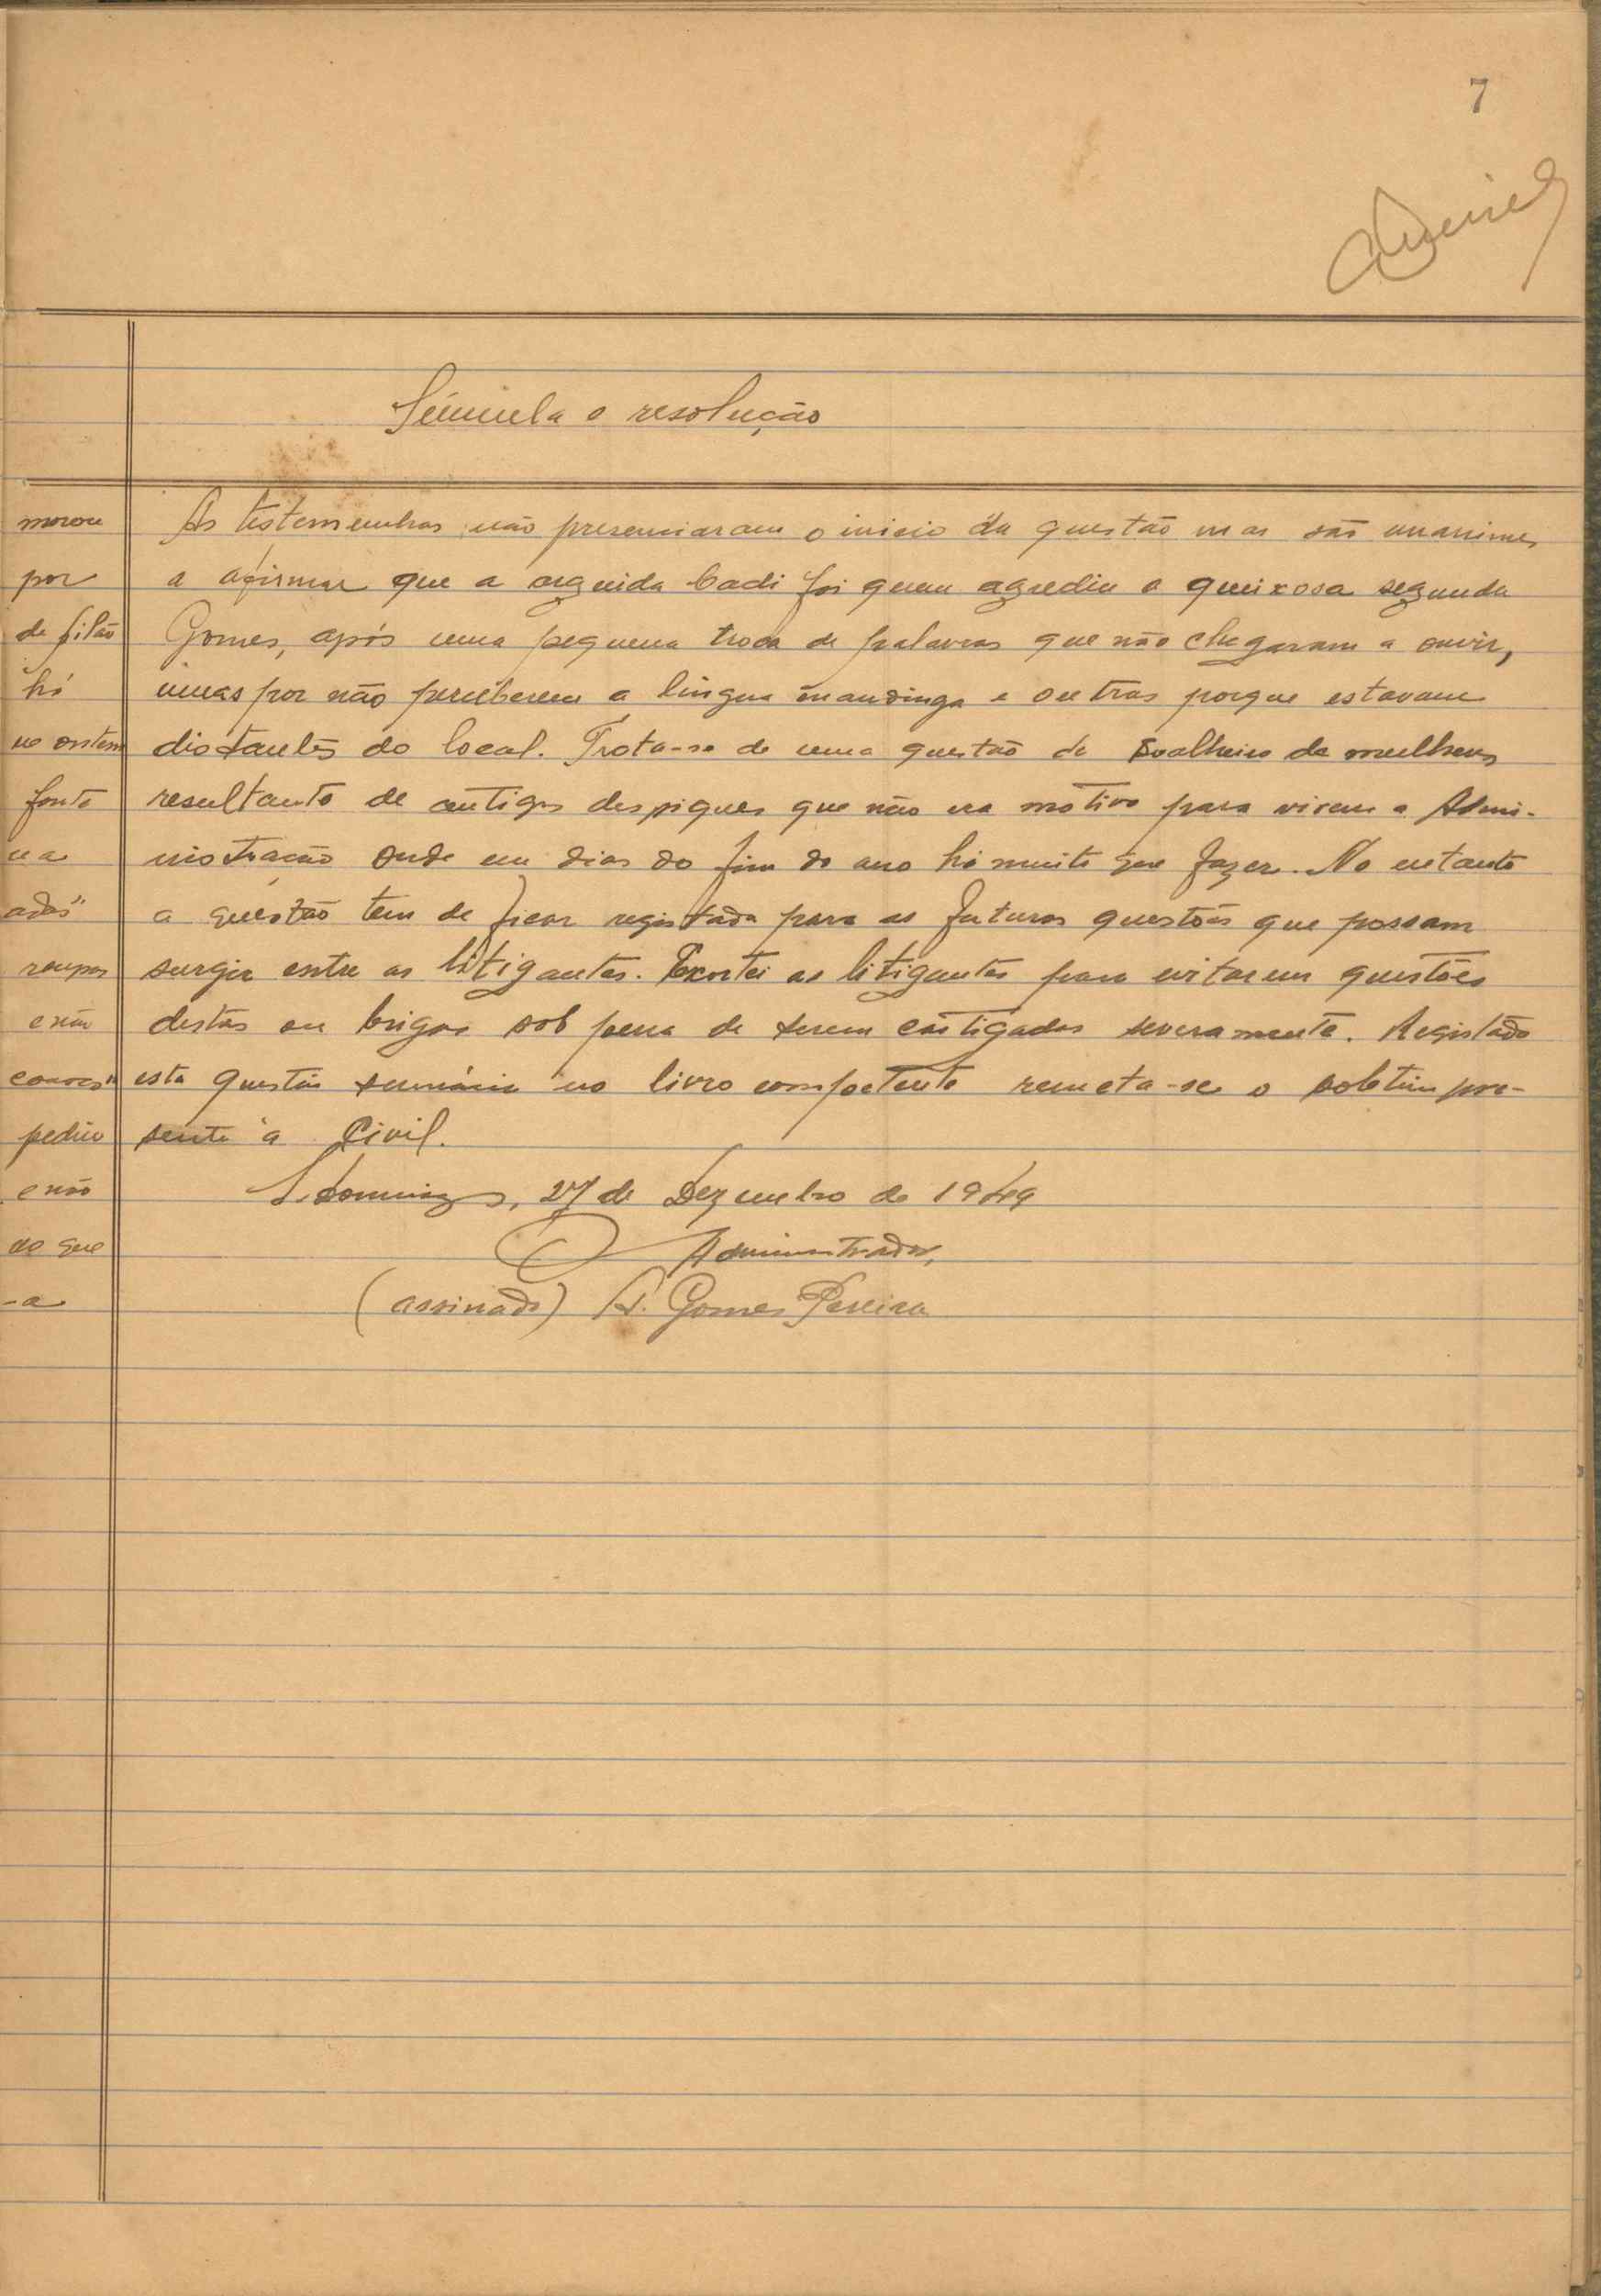 7
Súmula e resolução
morou
por
de filão
há
no ontem
fonte
na
adas"
roupas
e não
conves"
pediu
e não
do que
-a
As testemunhas não presenciaram o inicio da questão mas são unanimes
a afirmar que a arguida Cadi foi quem agrediu a queixosa segunda
Gomes, após uma pequena troca de palavras que não chegaram a ouvir,
umas por não perceberem a língua mandinga e outras porque estavam
distantes do local. Trata-se de uma questão de soalheiro de mulheres
resultante de antigos despiques que não era motivo para virem a Admi-
nistração onde em dias do fim do ano há muito que fazer. No entanto
a questão tem de ficar registada para as futuras questões que possam
surgir entre as litigantes. Exortei as litigantes para evitarem questões
destas ou brigas sob pena de serem castigadas severamente. Registado
esta questão sumária no livro competente remeta-se o boletim pre-
sente à Civil.
S. Domingos, 27 de Dezembro de 1949
O Administrador,
(assinado) A. Gomes Pereira